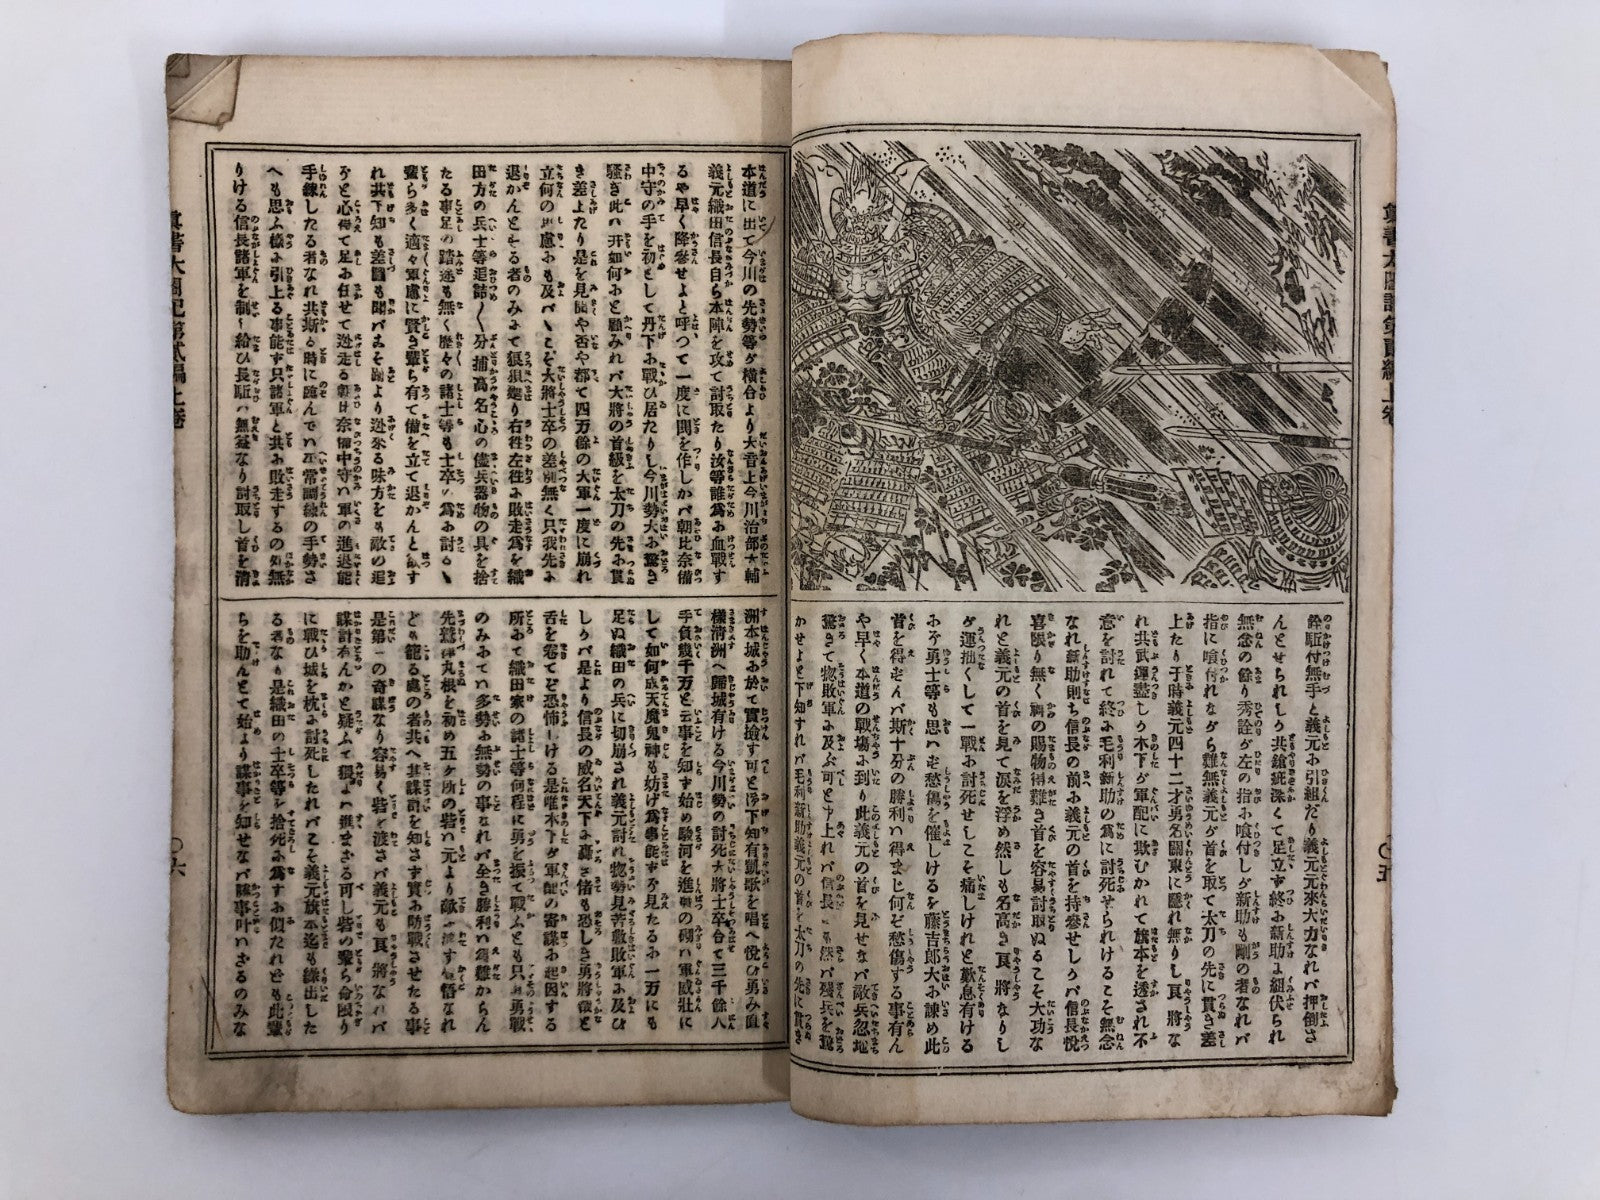 眞書太閤記第貳編上卷
〇五
銓駈付無手と義元に引組だり義元元來大力なれバ押倒さ
んとせられしり共鎗疵深くて足立ず終に新助に組伏られ
無念の餘り秀詮が左の指に喰付しが新助も剛の者なれバ
指に喰付れながら難無義元が首を取て太刀の先に貫き差
上たり于時義元四十二才勇名關東に隱れ無りし良將な
れ共武運盡しり木下が軍配に欺むかれて旗本を透され不
意を討れて終に毛利新助の爲に討死せられけるこそ無念
なれ新助則ち信長の前に義元の首を持參せしりバ信長悅
喜限り無く禍の賜物得難き首を容易討取ぬるこそ大功な
れと義元の首を見て淚を浮め然しも名高き良將なりし
が運拙くして一戰に討死せしこそ痛しけれと歎息有ける
にぞ勇士等も思ハむ愁傷を催しけるを藤吉郎大に諫め此
首を得むんバ斯十分の勝利ハ得まじ何ぞ愁傷する事有ん
や早く本道の戰場に到り此義元の首を見せなバ敵兵忽地
驚きて惣敗軍に及ぶ可しと申上れバ信長
かせよと下知すれバ毛利新助義元の首を太刀の先に貫き
本道に出て今川の先勢等が橫合より大音上今川治部太輔
義元織田信長自ら本陣を攻て討取たり汝等誰爲に血戰す
るや早く降參せよと呼つて一度に鬨を作しかバ朝比奈備
中守の手を初として丹下に戰ひ居たりし今川勢大に驚き
騷ぎ此ハ开如何にと顧みれバ大將の首級を太刀の先に貫
き差上たり是を見るや否や都て四万餘の大軍一度に崩れ
立何の思慮にも及バゝこそ大將士卒の差別無く只我先に
退かんとする者のみにて狼狽廻り右往左往に敗走爲を織
田方の兵士等追詰〱分捕高名心の儘兵器物の具を捨
たる事足の踏途も無く歷々の諸士等も士卒の爲に討るゝ
輩ら多く適々軍慮に賢き輩ら有て備を立て退かんと爲す
れ共下知も差圖も聞バこそ跡より迯來る味方をも敵の追
ぞと心得て足に任せて迯走る朝比奈備中守ハ軍の進退能
手練したる者なれ共斯る時に臨んでハ平常調練の手勢さ
へも思ふ樣に引上る事能ず只諸軍と共に敗走するのみ無
りける信長諸軍を制し給ひ長駈ハ無益なり討取し首を淸
洲本城に於て實檢す可と御下知有凱歌を唱へ悅び勇み直
樣淸洲へ歸城有ける今川勢の討死大將士卒合て三千餘人
手負幾千万と云事を知ず始め駿河を進發の砌ハ軍威壯に
して如何成天魔鬼神も妨げ爲事能ずぞ見たるに一万にも
足ぬ織田の兵に切崩され義元討れ惣勢見苦敷敗軍に及び
しりバ是より信長の威名天下に轟き偖も恐しき勇將哉と
舌を卷てぞ恐怖しける是唯木下が軍師の寄謀に起因する
所にて織田家の諸士等何程に勇を振て戰ふとも只血勇戰
のみにてハ多勢に無勢の事なれバ全き勝利ハ
先鷲津丸根を初め五ケ所の砦ハ元より敵に渡す覺悟なれ
ども籠る處の者共へ其謀計を知さず實に防戰させたる事
是第一の奇謀なり容易く砦を渡さバ義元も良將なれバ
謀計有んかと疑ふて猥よハ進まざる可し砦の輩ら命限り
に戰ひ城を枕に討死したれバこそ義元旗本迄も繰出した
る者なり是織田の士卒等を捨死に爲すに似たれども此輩
ちを助んとて始より謀事を知せなバ謀事叶ハざるのみな
眞書太閤記第貳編上卷
〇六